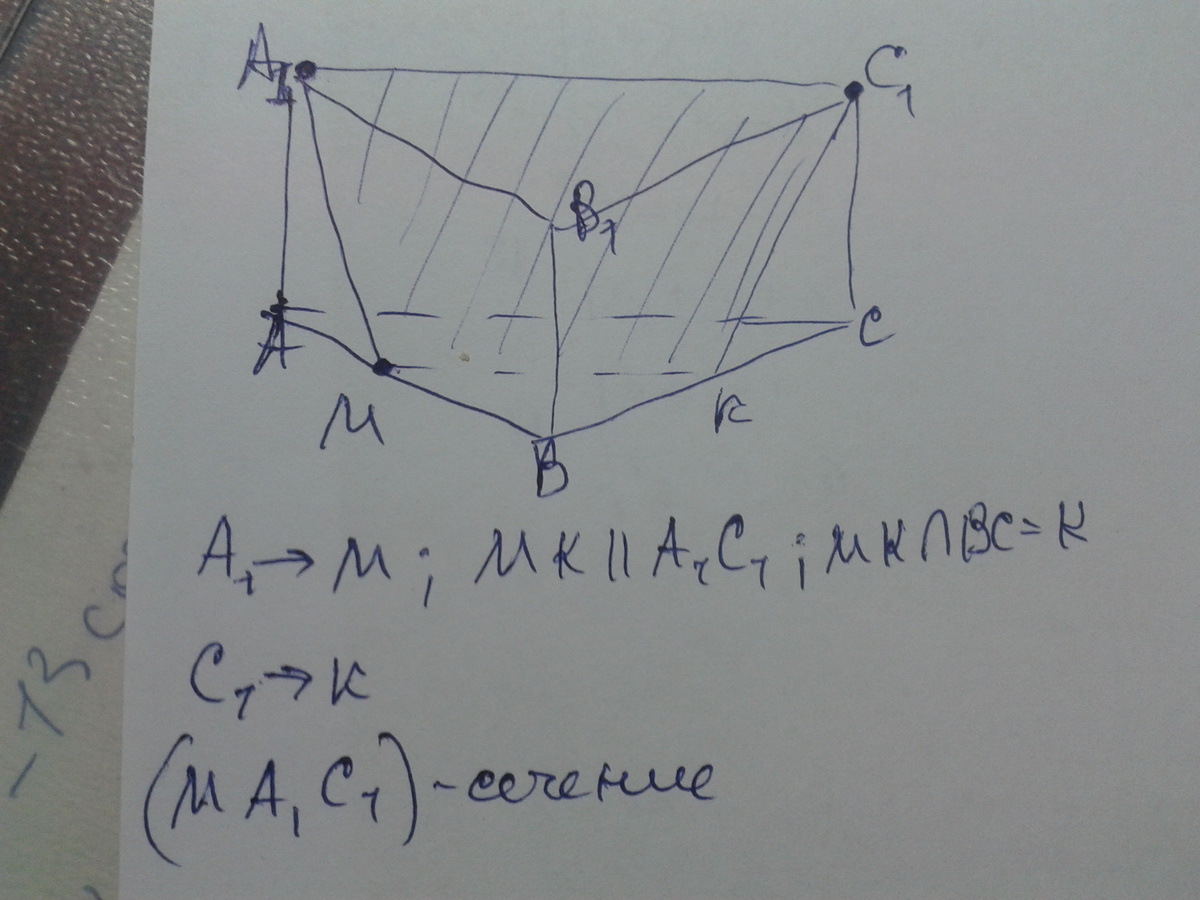 A₁ C₁
B₁
A C
M K
B
A₁→M; MK||A₁C₁; MK∩BC=K
C₁→K
(MA₁C₁)-сечение
-13